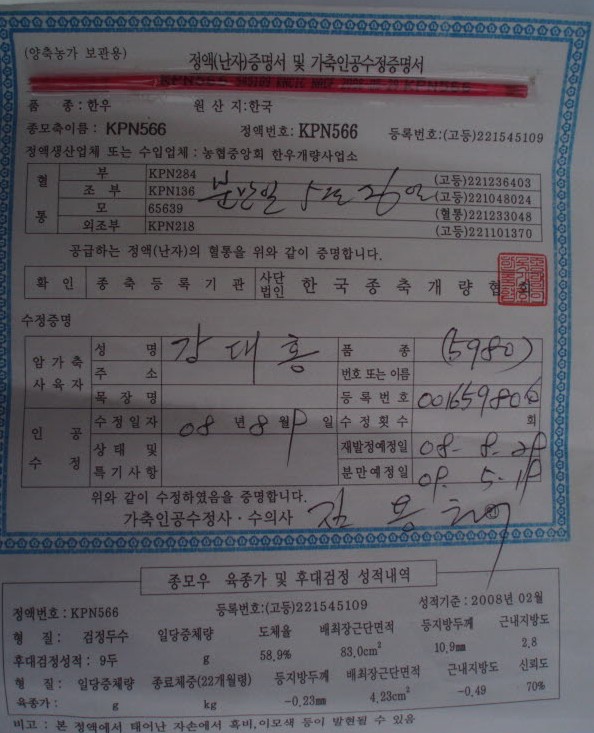 (양축농가 보관용)
정액(난자)증명서 및 가축인공수정증명서
품 종:한우 원 산 지:한국
종모축이름 : KPN566 정액번호: KPN566 등록번호:(고등)221545109
정액생산업체 또는 수입업체 : 농협중앙회 한우개량사업소
혈통 부 KPN284 (고등)221236403
조 부 KPN136 (고등)221048024
모 65639 (혈통)221233048
외조부 KPN218 (고등)221101370
분만일 5월 26일
공급하는 정액(난자)의 혈통을 위와 같이 증명합니다.
확 인 종 축 등 록 기 관 사단법인 한 국 종 축 개 량 협 회
수정증명
암 가 축 사 육 자 성 명 강 대 홍 품 종 (5980)
주 소 번호 또는 이름
목 장 명 등 록 번 호 001659806
인 공 수 정 수 정 일 자 08 년 8 월 9 일 수 정 횟 수 회
상 태 및 특 기 사 항 재발정예정일 08-8-29
분만예정일 09. 5-19
위와 같이 수정하였음을 증명합니다.
가축인공수정사 · 수의사
종모우 육종가 및 후대검정 성적내역
정액번호 : KPN566 등록번호:(고등)221545109 성적기준 : 2008년 02월
형 질 : 검정두수 일당증체량 도체율 배최장근단면적 등지방두께 근내지방도
후대검정성적 : 9두 g 58.9% 83.0cm² 10.9mm 2.8
형 질 : 일당증체량 종료체중(22개월령) 등지방두께 배최장근단면적 근내지방도 신뢰도
육종가 : g kg -0.23mm 4.23cm² -0.49 70%
비고 : 본 정액에서 태어난 자손에서 흑비,이모색 등이 발현될 수 있음